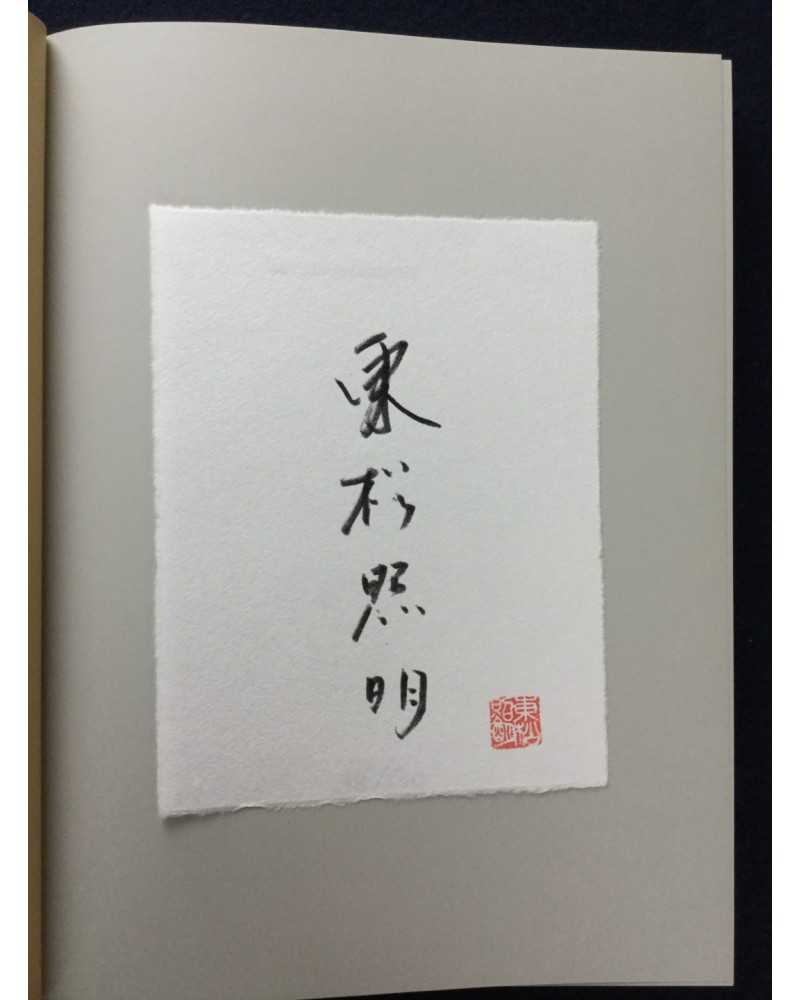 東松照明
東松照明